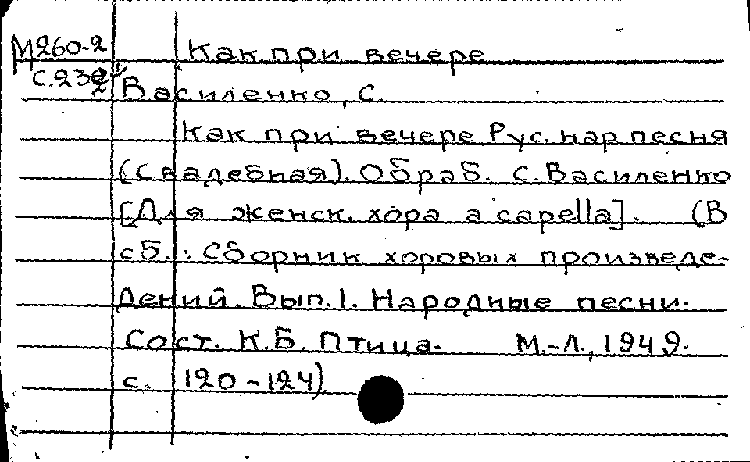 М260-2 Как при вечере
Василенко, С.
Как при вечере Рус. нар песня
(Свадебная). Обраб. С. Василенко
[Для женск. хора a capella]. (В
сб.: Сборник хоровых произведе-
дений. Вып. 1. Народные песни.
Сост. К.Б. Птица. М.-Л., 1949.
с. 120-124)